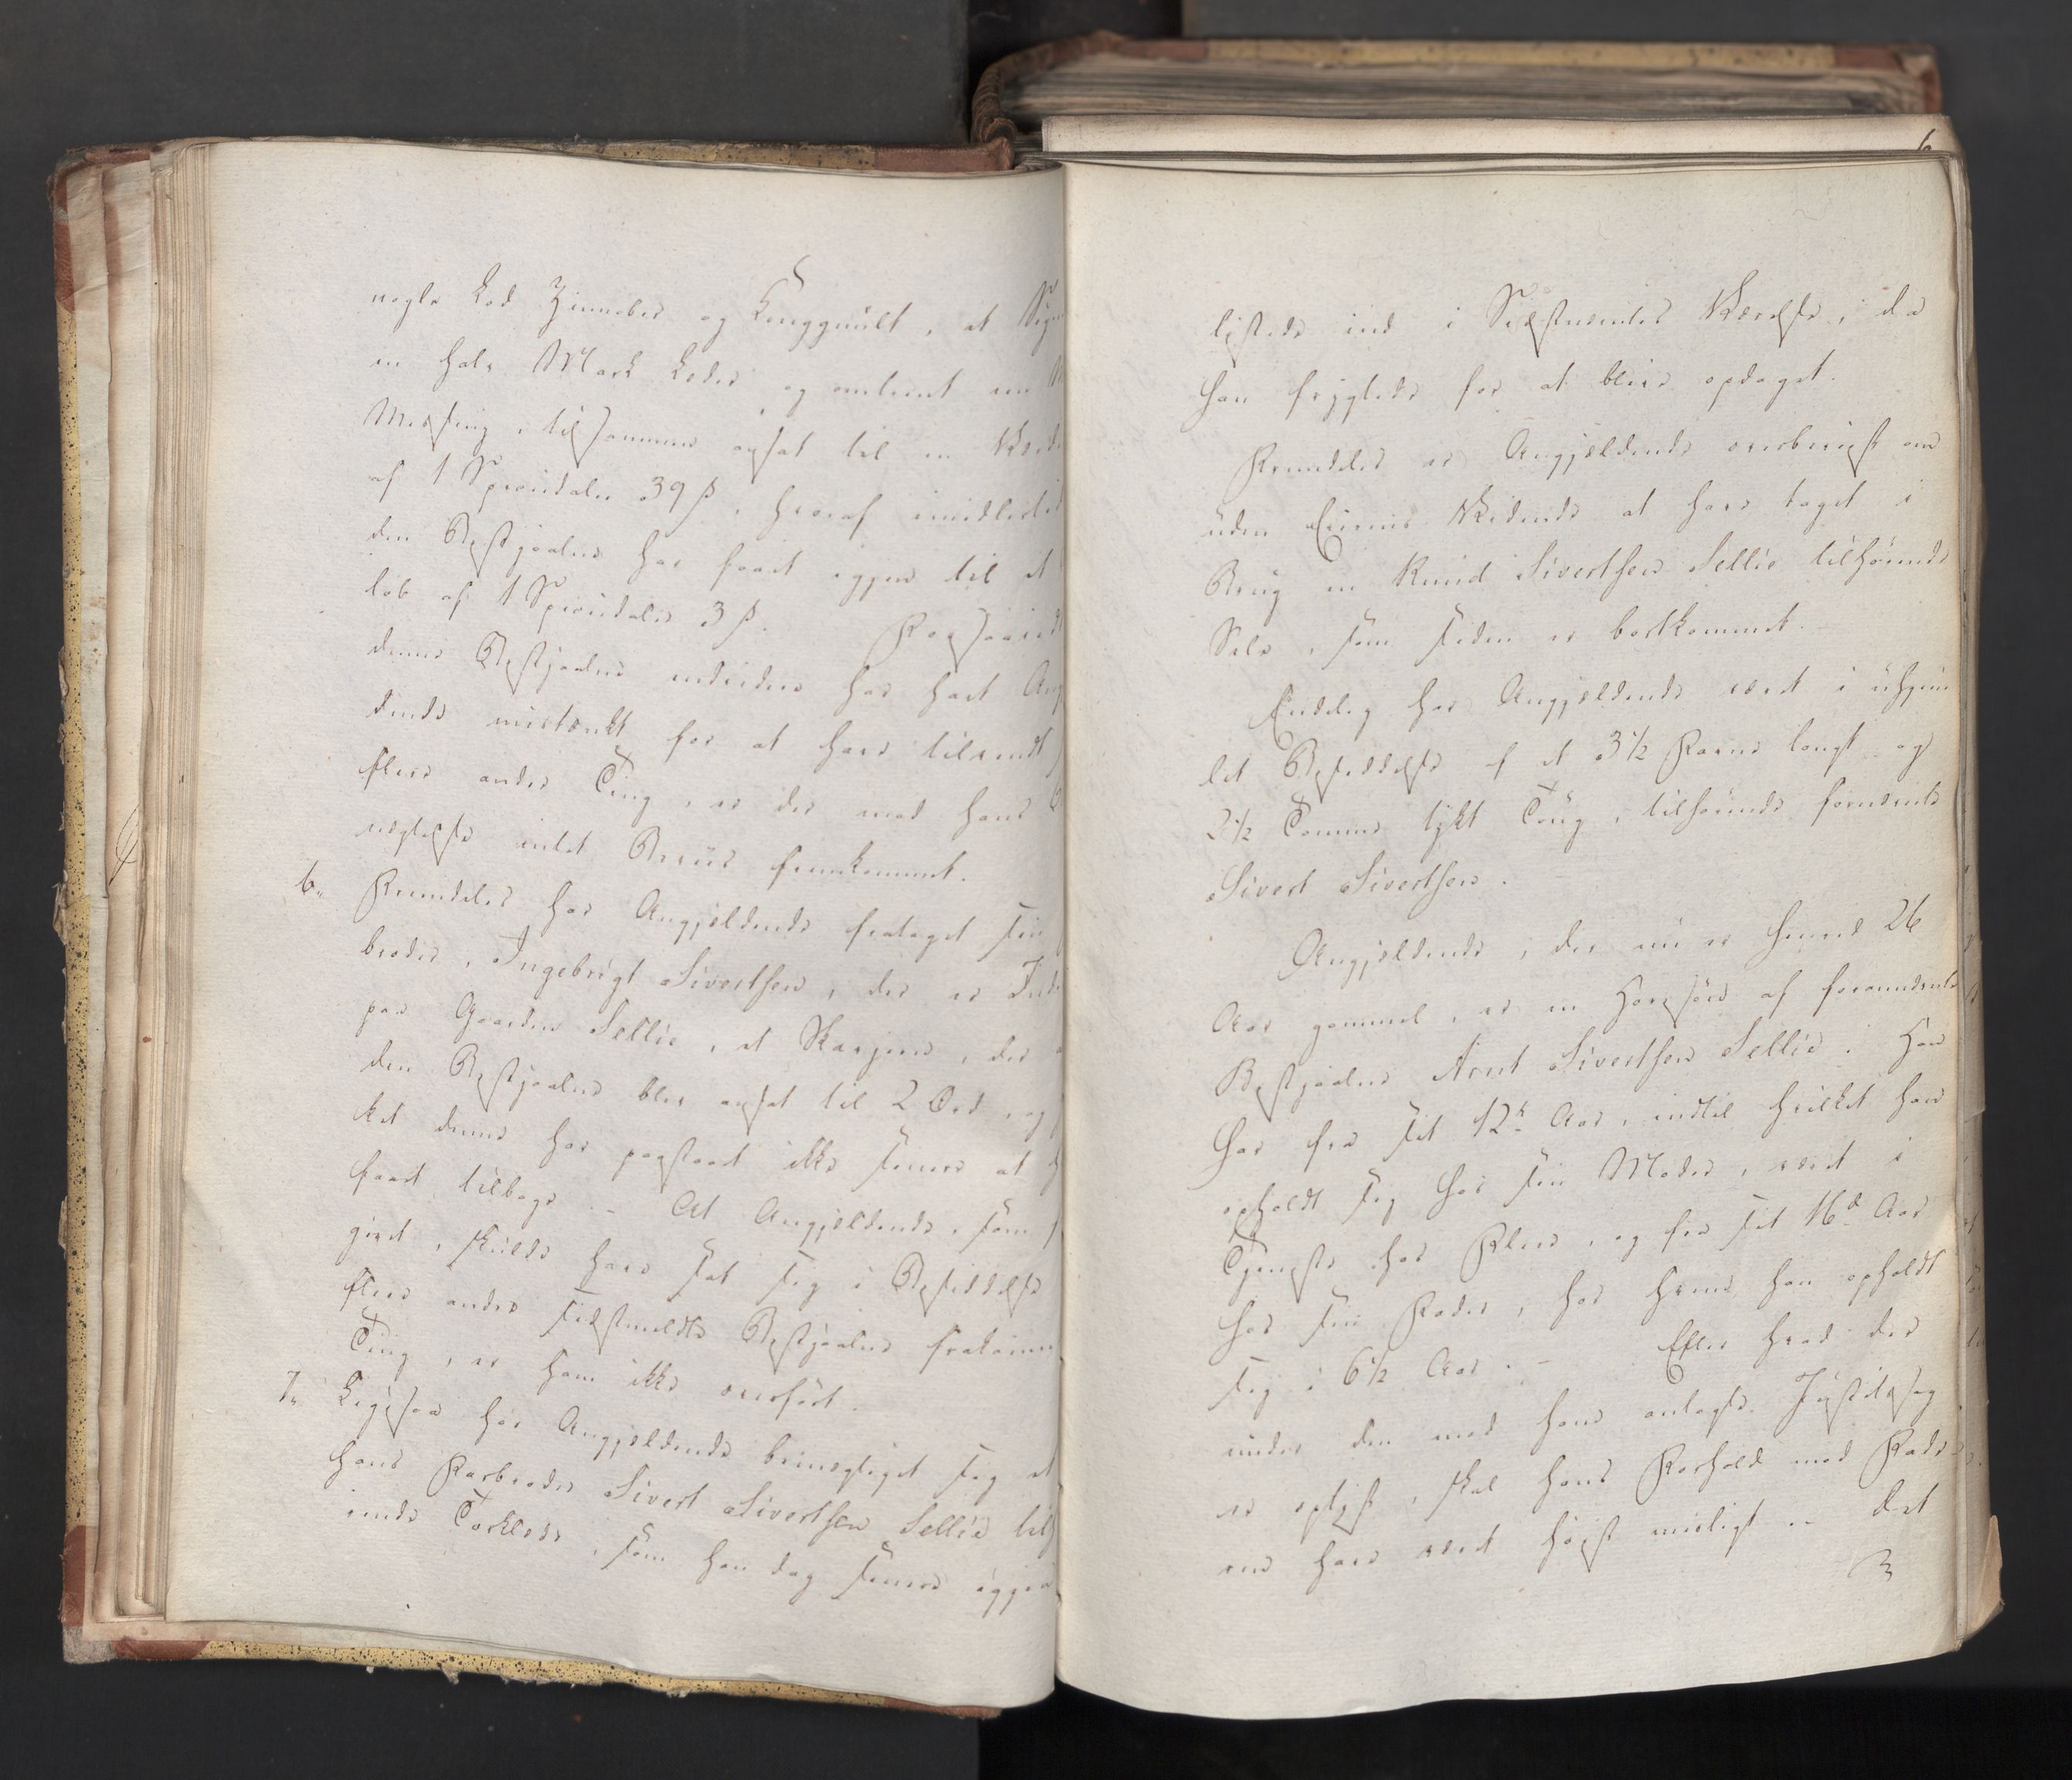 nogle Lod Zinnober og Konggguult, at
en halv Mark Læder og omtrent en
Messing, tilsammen ansat til en Værdi
af 1 Speciedaler 39 ß, hvoraf imidlertid
den Bestjaalne har faaet igjen til et
løb af 1 Speciedaler 3 ß. Forsaavidt
denne Bestjaalne endvidere har havt
dende mistænkt for at have tilvendt
flere andre Ting, er der mod hans
nægtelse intet Beviis fremkommet.
6" Fremdeles har Angjeldende frataget sin
broder, Ingebrigt Sivertsen, der er
paa Gaarden Sellie, et Skarjern, der
den Bestjaalne blev ansat til 2 Ort, og
ket denne har paastaaet ikke senere at
faaet tilbage. – At Angjeldende, som
givet, skulde have sat sig i Besiddelse
flere andre sidstmeldte Bestjaalne frakomne
Ting, er ham ikke overført.
7" Ligesaa har Angjeldende bemægtiget sig et
hans Farbroder Sivert Sivertsen Sellie
ende Tørklæde, som han dog senere igjen
6
listede ind i Sidstnævntes Værelse, da
han frygtede for at blive opdaget.
Fremdeles er Angjeldende overbeviist om
uden Eierens Vidende at have taget i
Brug en Knud Sivertsen Sellie tilhørende
Sele, som siden er bortkommet.
Endelig har Angjeldende været i uhjem
let Besiddelse af et 3½ Favne langt og
2½ Tomme tykt Toug, tilhørende fornævnte
Sivert Sivertsen.
Angjeldende, der nu er henved 26
Aar gammel, er en Horesøn af forannævnte
Bestjaalne Arnt Sivertsen Sellie. Han
har fra sit 12te Aar, indtil hvilket han
opholdt sig hos sin Moder, været i
Tjeneste hos Flere, og fra sit 16de Aar
hos sin Fader, hos hvem han opholdt
sig i 6½ Aar. – Efter hvad der
under den mod ham anlagte Justitssag
er oplyst, skal hans Forhold mod Fade
ren have været høist misligt – det